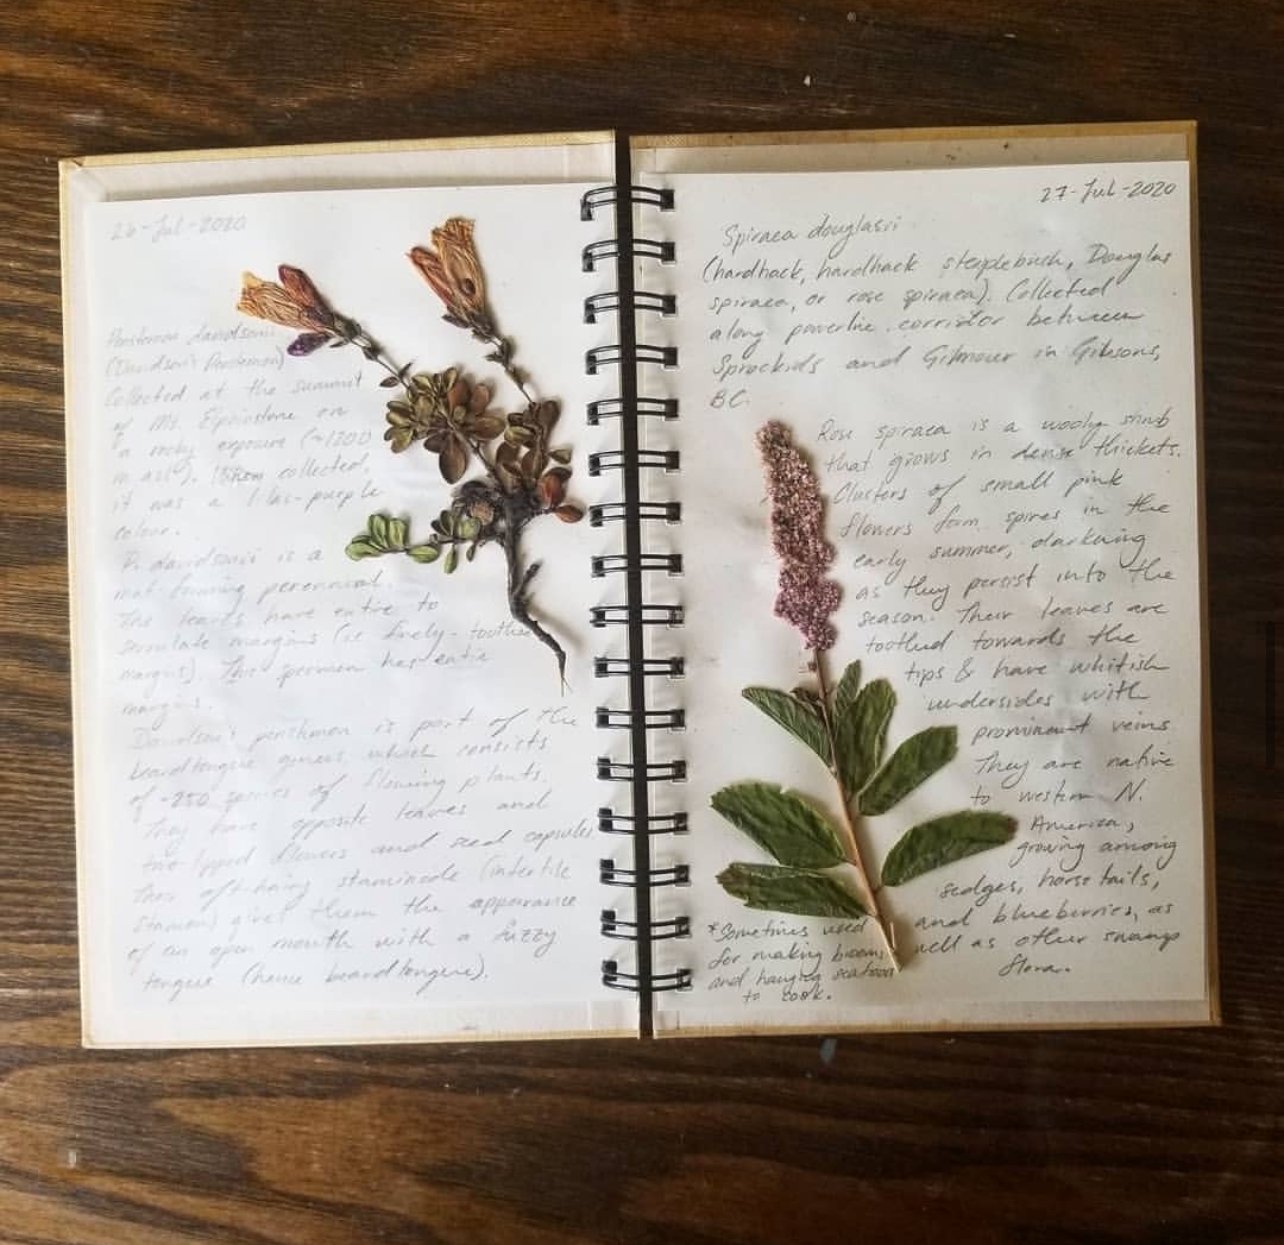 26-Jul-2020
Penstemon davidsonii
(Davidson's Penstemon)
Collected at the summit
of Mt. Elphinstone on
a rocky exposure (~1200
m asl). When collected,
it was a lilac-purple
colour.
P. davidsonii is a
mat-forming perennial.
The leaves have entire to
serrulate margins (ie finely-toothed
margins). This specimen has entire
margins.
Davidson's penstemon is part of the
beardtongue genus which consists
of ~250 species of flowing plants.
They have opposite leaves and
two-lipped flowers and seed capsules
Their oft-hairy staminode (infertile
stamen) gives them the appearance
of an open mouth with a fuzzy
tongue (hence beardtongue).
27-Jul-2020
Spiraea douglasii
(hardhack, hardhack steeplebush, Douglas
spiraea, or rose spiraea). Collected
along powerline corridor between
Sprockids and Gilmour in Gibsons,
BC.
Rose spiraea is a woody shrub
that grows in dense thickets.
Clusters of small pink
flowers form spires in the
early summer, darkening
as they persist into the
season. Their leaves are
toothed towards the
tips & have whitish
undersides with
prominent veins
They are native
to western N.
America,
growing among
sedges, horsetails,
and blueberries, as
well as other swamp
flora.
*Sometimes used
for making brooms
and hanging seafood
to cook.